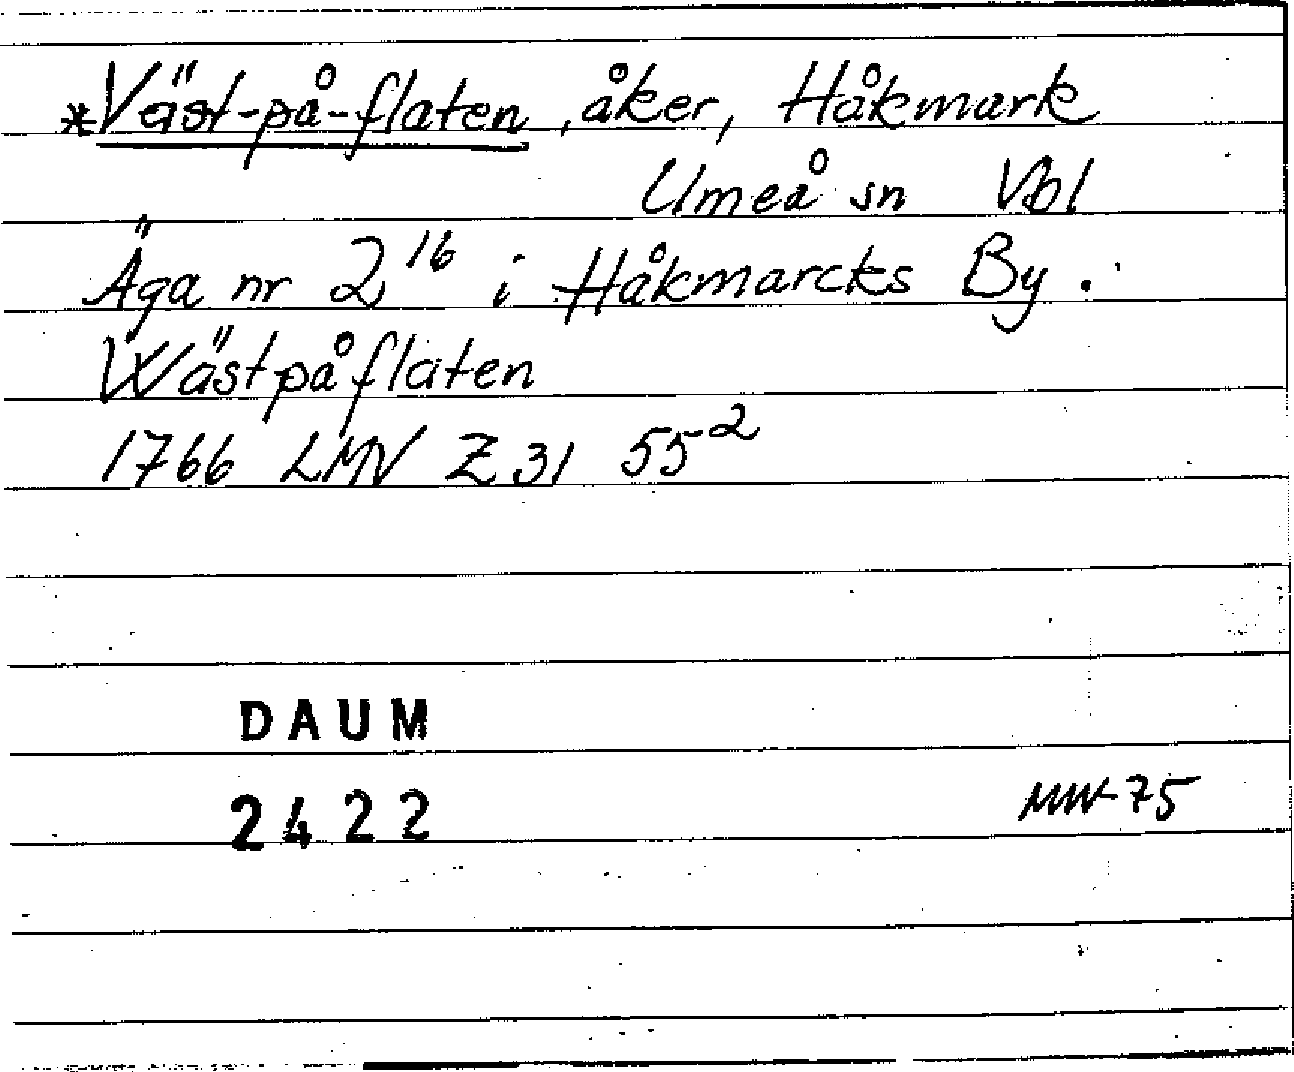 *Väst-på-flaten, åker, Håkmark
Umeå sn Vbl
Äga nr 2¹⁶ i Håkmarcks By.
Wästpåflaten
1766 LMV Z 31 55²
DAUM
2422
MW-75